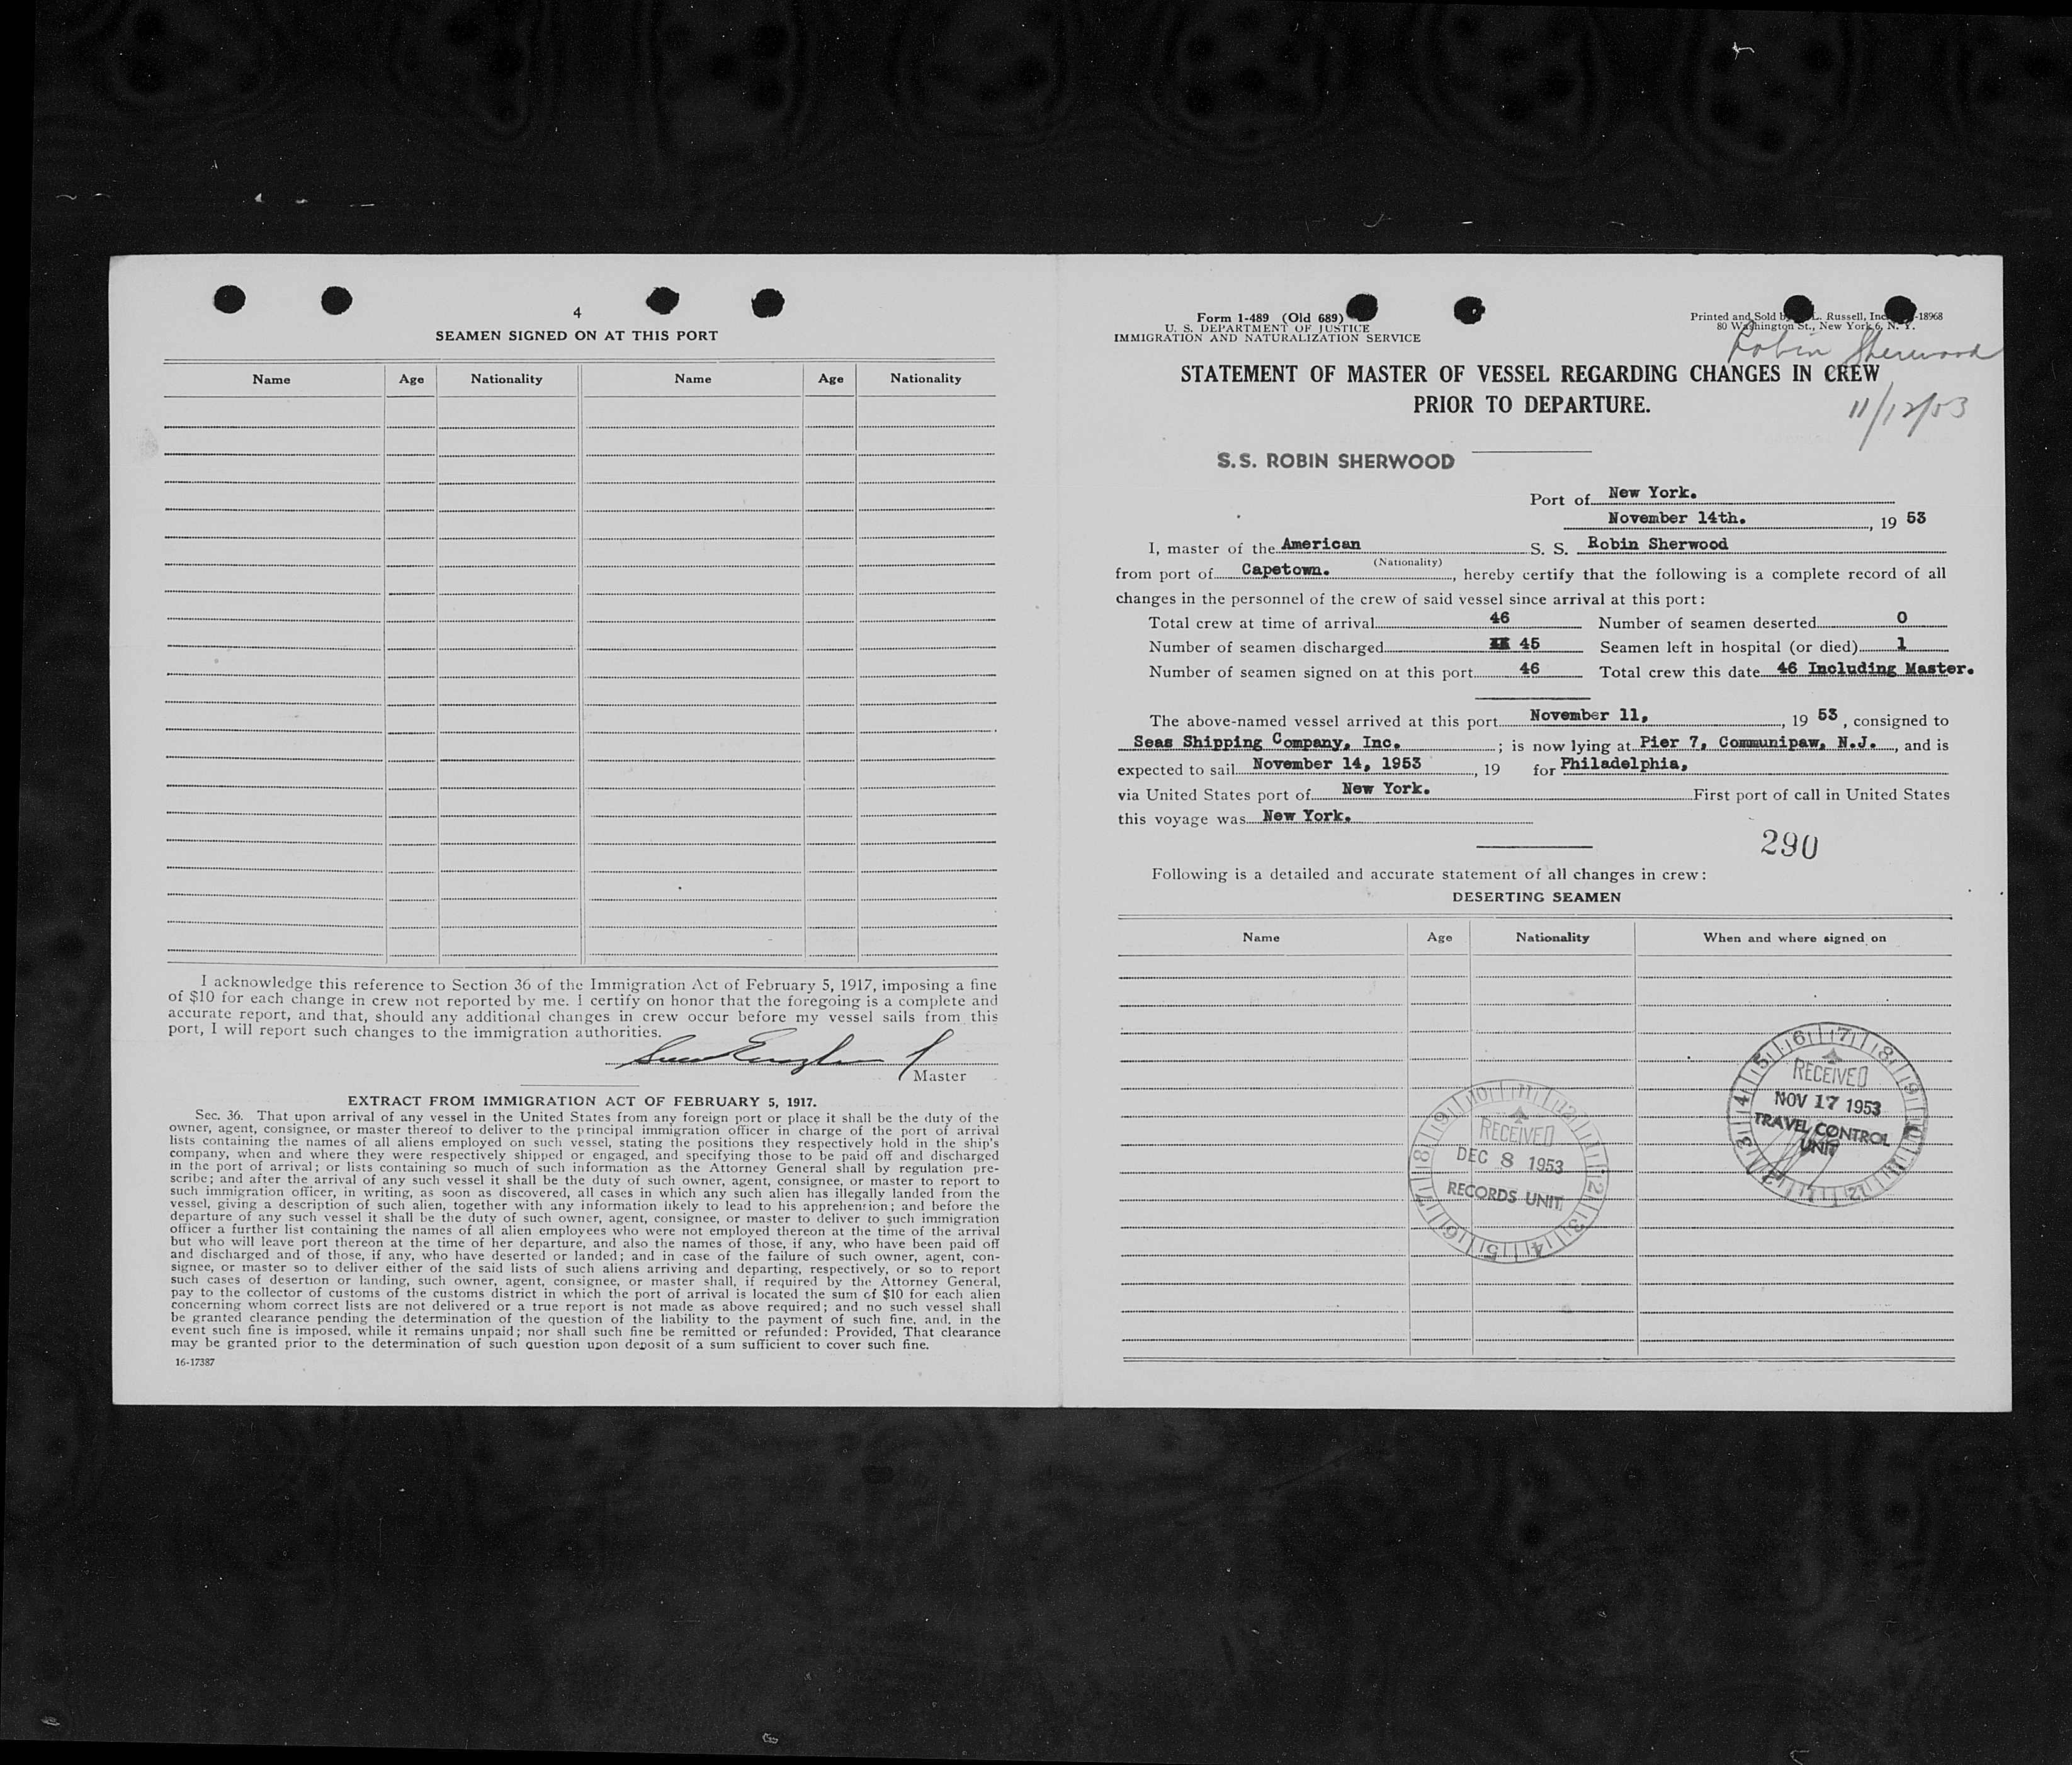 4
SEAMEN SIGNED ON AT THIS PORT
Name Age Nationality Name Age Nationality
I acknowledge this reference to Section 36 of the Immigration Act of February 5, 1917, imposing a fine
of $10 for each change in crew not reported by me. I certify on honor that the foregoing is a complete and
accurate report, and that, should any additional changes in crew occur before my vessel sails from this
port, I will report such changes to the immigration authorities.
Master
EXTRACT FROM IMMIGRATION ACT OF FEBRUARY 5, 1917.
Sec. 36. That upon arrival of any vessel in the United States from any foreign port or place it shall be the duty of the
owner, agent, consignee, or master thereof to deliver to the principal immigration officer in charge of the port of arrival
lists containing the names of all aliens employed on such vessel, stating the positions they respectively hold in the ship's
company, when and where they were respectively shipped or engaged, and specifying those to be paid off and discharged
in the port of arrival; or lists containing so much of such information as the Attorney General shall by regulation pre-
scribe; and after the arrival of any such vessel it shall be the duty of such owner, agent, consignee, or master to report to
such immigration officer, in writing, as soon as discovered, all cases in which any such alien has illegally landed from the
vessel, giving a description of such alien, together with any information likely to lead to his apprehension; and before the
departure of any such vessel it shall be the duty of such owner, agent, consignee, or master to deliver to such immigration
officer a further list containing the names of all alien employees who were not employed thereon at the time of the arrival
but who will leave port thereon at the time of her departure, and also the names of those, if any, who have been paid off
and discharged and of those, if any, who have deserted or landed; and in case of the failure of such owner, agent, con-
signee, or master so to deliver either of the said lists of such aliens arriving and departing, respectively, or so to report
such cases of desertion or landing, such owner, agent, consignee, or master shall, if required by the Attorney General,
pay to the collector of customs of the customs district in which the port of arrival is located the sum of $10 for each alien
concerning whom correct lists are not delivered or a true report is not made as above required; and no such vessel shall
be granted clearance pending the determination of the question of the liability to the payment of such fine, and, in the
event such fine is imposed, while it remains unpaid; nor shall such fine be remitted or refunded: Provided, That clearance
may be granted prior to the determination of such question upon deposit of a sum sufficient to cover such fine.
16-17387
Form 1-489 (Old 689)
U. S. DEPARTMENT OF JUSTICE
IMMIGRATION AND NATURALIZATION SERVICE
Printed and Sold L. Russell, Inc. -18968
80 Washington St., New York 6, N. Y.
Robin Sherwood
STATEMENT OF MASTER OF VESSEL REGARDING CHANGES IN CREW
PRIOR TO DEPARTURE.
11/12/53
S.S. ROBIN SHERWOOD
Port of New York.
November 14th. , 19 53
I, master of the American S. S. Robin Sherwood
(Nationality)
from port of Capetown. , hereby certify that the following is a complete record of all
changes in the personnel of the crew of said vessel since arrival at this port:
Total crew at time of arrival 46 Number of seamen deserted 0
Number of seamen discharged 45 Seamen left in hospital (or died) 1
Number of seamen signed on at this port 46 Total crew this date 46 Including Master.
The above-named vessel arrived at this port November 11, , 19 53 , consigned to
Seas Shipping Company, Inc. ; is now lying at Pier 7, Communipaw, N.J. , and is
expected to sail November 14, 1953 , 19 for Philadelphia,
via United States port of New York. First port of call in United States
this voyage was New York.
290
Following is a detailed and accurate statement of all changes in crew:
DESERTING SEAMEN
Name Age Nationality When and where signed on
RECEIVED
NOV 17 1953
TRAVEL CONTROL
UNIT
RECEIVED
DEC 8 1953
RECORDS UNIT